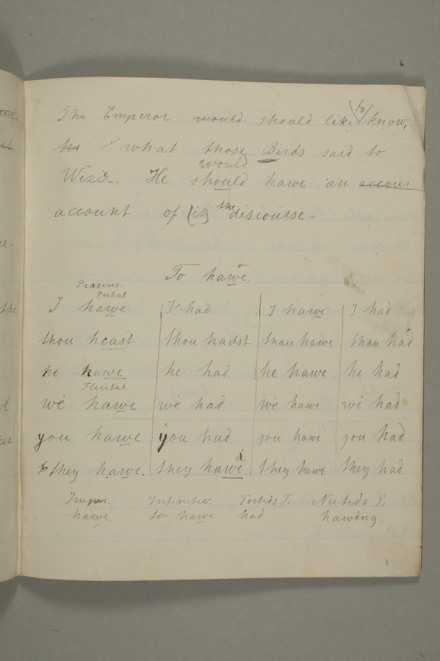 The Emperor would should like to know,
what those Birds said to
would
Wezir. He should hawe an accoun
account of his the discourse.
To hawe
Præsens
I hawe I had I hawe I had
thou hcast thou hadst thou hawe thou had
he hawe he had he hawe he had
Flertal
we hawe we had we hawe we had
you hawe you had you hawe you had
they hawe. they hawe they hawe they had
Infinitiv.
hawe to hawe had hawing.